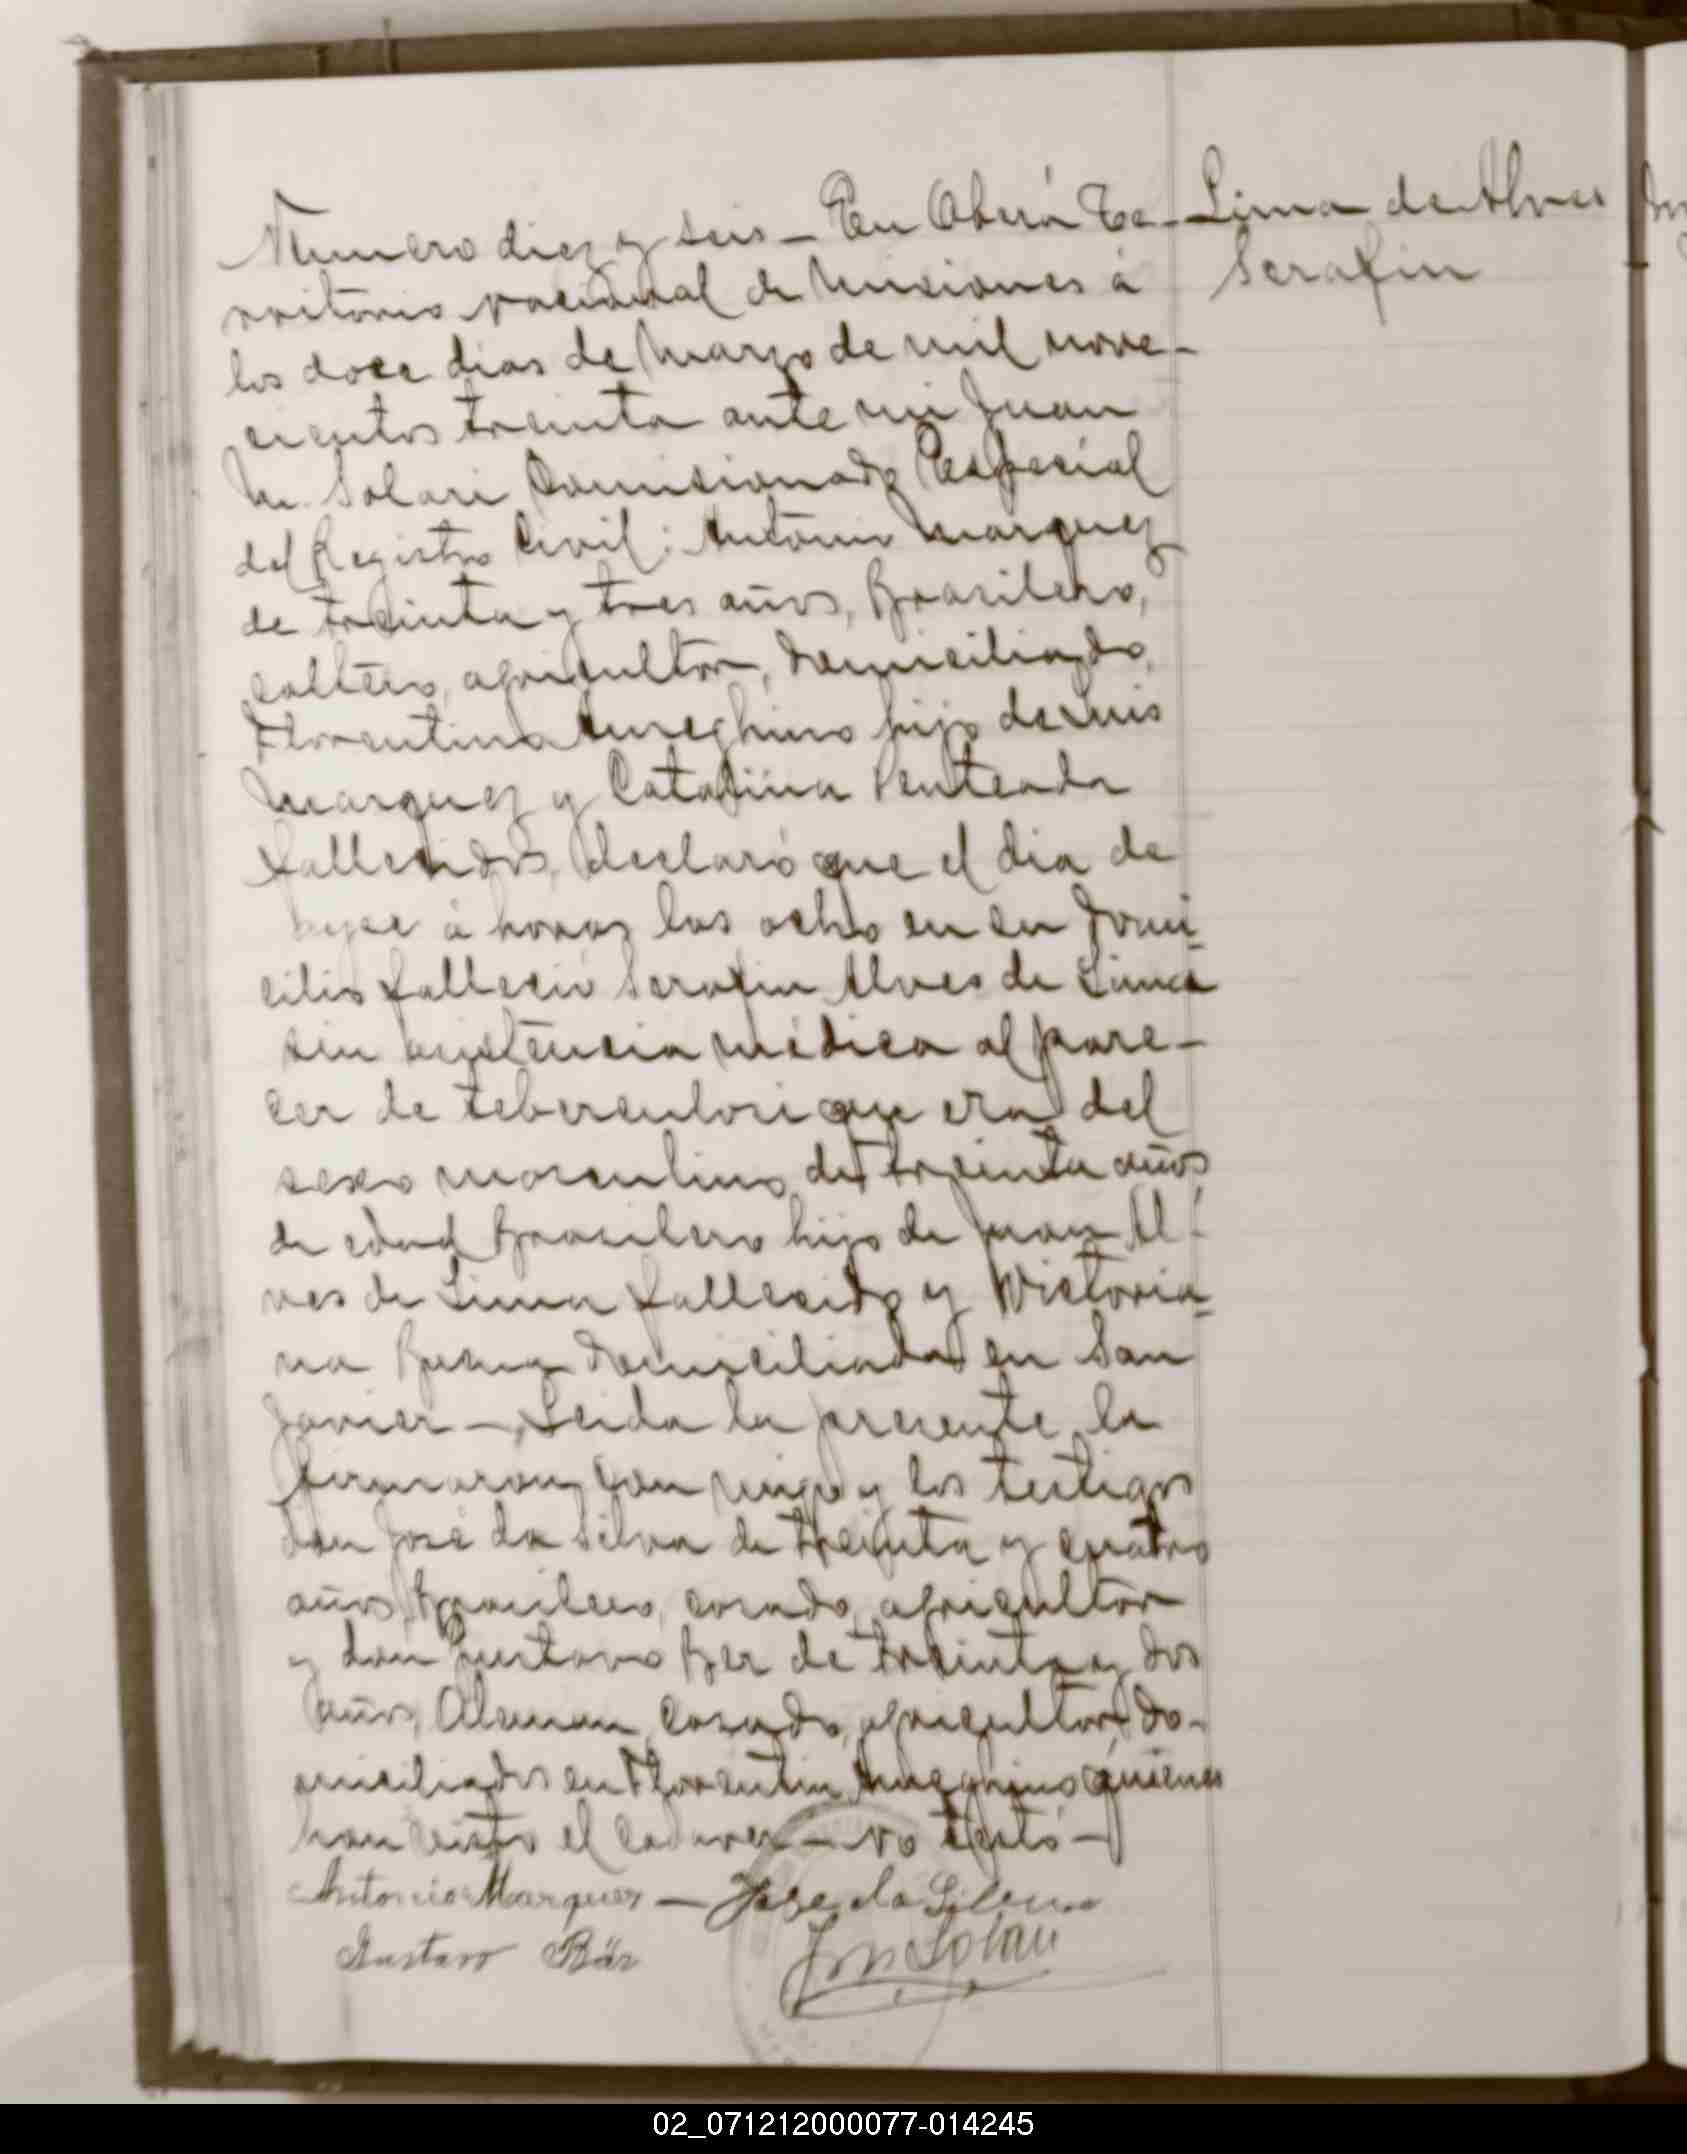 Numero diez y seis – En Oberá Te-
rritorio nacional de Misiones á
los doce dias de Marzo de mil nove-
cientos treinta ante mi Juan
M. Solari Comisionado Especial
del Registro Civil: Antonio Marquez
de treinta y tres años, Brasilero,
soltero, agricultor, domiciliado,
Florentino Ameghino hijo de Luis
Marquez y Catalina Penteada
fallecidos, declaró que el dia de
á horas las ocho en su domi-
cilio falleció Serafin Alves de Lima
sin asistencia médica al pare-
cer de teberculosi que era del
sexo masculino de treinta años
de edad Brasilero hijo de Juan Al-
ves de Lima fallecido y Victoria-
na Buena domiciliada en San
Javier – Leida la presente la
firmaron con migo y los testigos
don José da Silva de treinta y cuatro
años, Brasilero, casado, agricultor
y don Gustavo Ber de treinta y dos
años, Aleman, casado, agricultor, do-
miciliados en Florentin Ameghino quienes
han visto el cadaver – no testó –
Antonio Marques – Jose da Silva
Gustavo Bär
Solari
Lima de Alves
Serafin
02_071212000077-014245